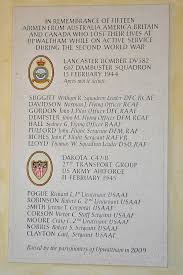 IN REMEMBRANCE OF FIFTEEN
AIRMEN FROM AUSTRALIA AMERICA BRITAIN
AND CANADA WHO LOST THEIR LIVES AT
UPWALTHAM WHILE ON ACTIVE SERVICE
DURING THE SECOND WORLD WAR
LANCASTER BOMBER DV382
617 DAMBUSTER SQUADRON
13 FEBRUARY 1944
SUGGITT William R. Squadron Leader DFC RCAF
DAVIDSON Norman J. Flying Officer RCAF
GORDON John I. Flying Officer DFC RAAF
DEMPSTER John M. Flying Officer DFM RCAF
HALL Sidney G. Flying Officer RAF
PULFORD John Flight Sergeant DFM RAF
RICHES James P. Flight Sergeant RAF
LLOYD Thomas W. Squadron Leader DSO RAF
DAKOTA C47-B
27TH TRANSPORT GROUP
US ARMY AIRFORCE
11 FEBRUARY 1945
POGUE Richard L. 1st Lieutenant USAAF
ROBINSON Robert G. 2nd Lieutenant USAAF
SMITH Jerome T. Corporal USAAF
CORSON Victor C. Staff Sergeant USAAF
MOORE Craig 2nd Lieutenant USAAF
NOBLES Robert Sergeant USAAF
CLAYTON Carl Sergeant USAAF
Raised by the parishioners of Upwaltham in 2009